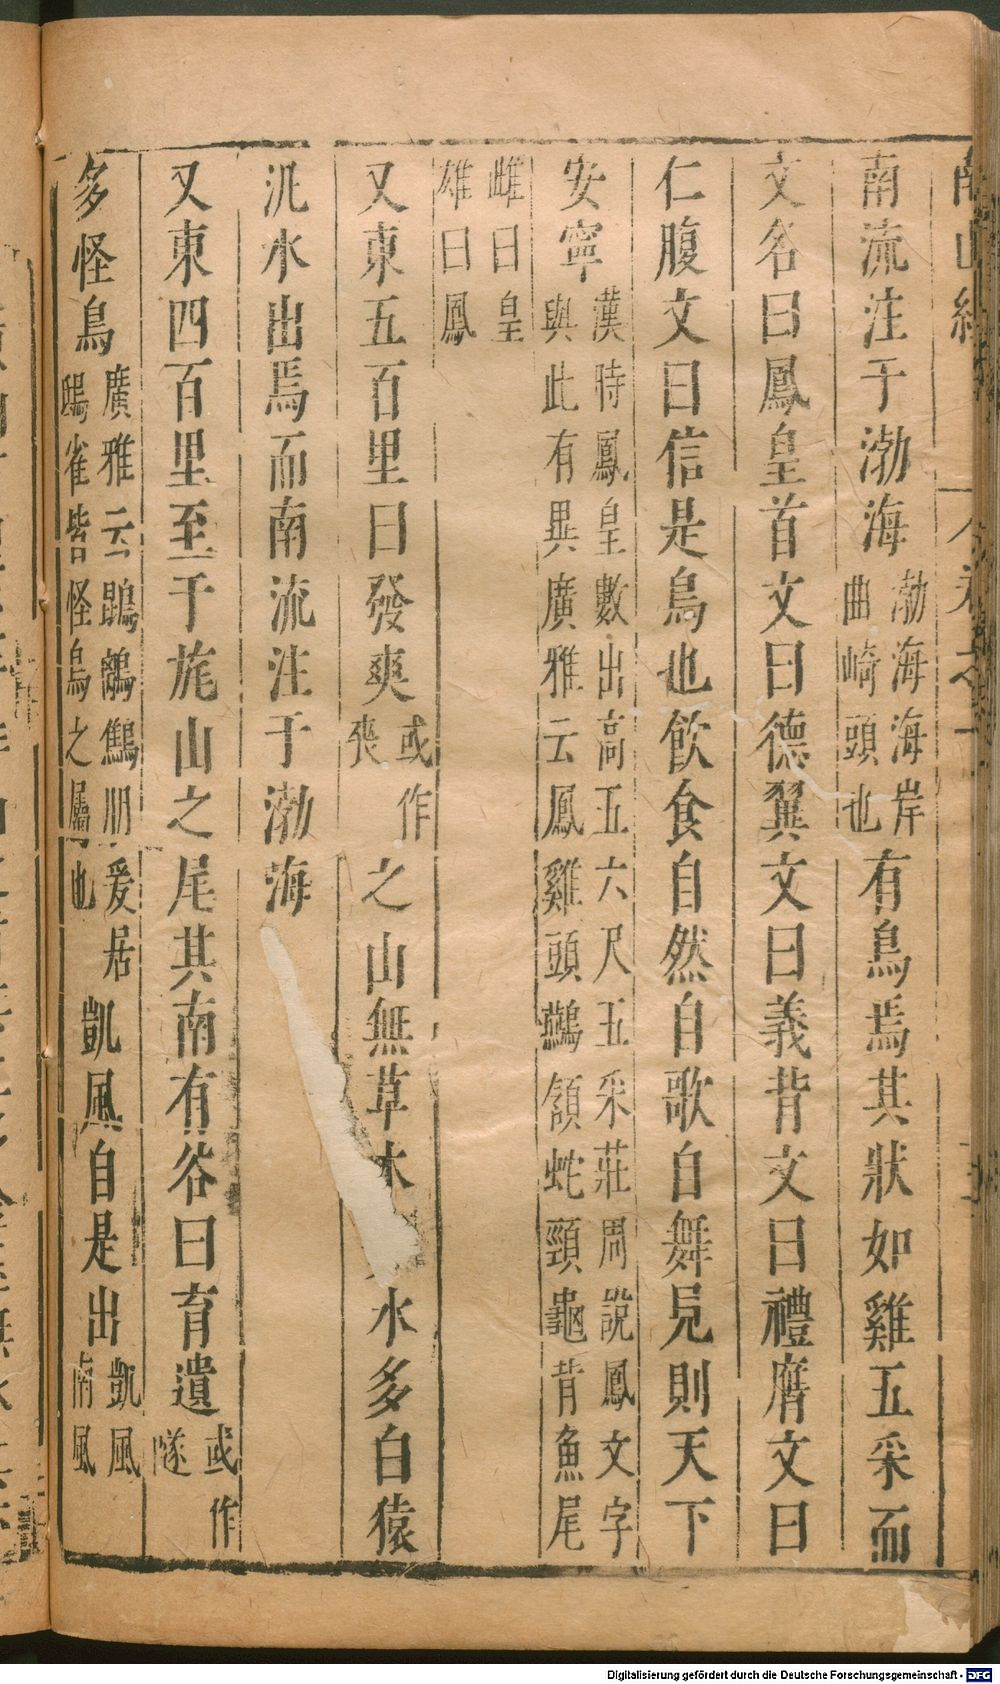 南山經
南流注于渤海渤海海岸曲崎頭也有鳥焉其狀如雞五采而
文名曰鳳皇首文曰德翼文曰義背文曰禮膺文曰
仁腹文曰信是鳥也飲食自然自歌自舞見則天下
安寧漢時鳳皇數出高五六尺五采莊周說鳳文字與此有異廣雅云鳳雞頭鷰頷蛇頸龜背魚尾
雌曰皇雄曰鳳
又東五百里曰發爽或作喪之山無草木水多白猿
汎水出焉而南流注于渤海
又東四百里至于旄山之尾其南有谷曰育遺或作隧
多怪鳥廣雅云鶋鶋鷦明爰居鴟雀皆怪鳥之屬也凱風自是出凱風南風
Digitalisierung gefördert durch die Deutsche Forschungsgemeinschaft - DFG